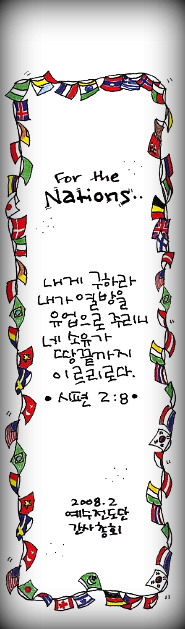 For the
Nations..
내게 구하라
내가 열방을
유업으로 주리니
네 소유가
땅끝까지
이르리로다.
• 시편 2:8 •
2008. 2
예수전도단
간사총회